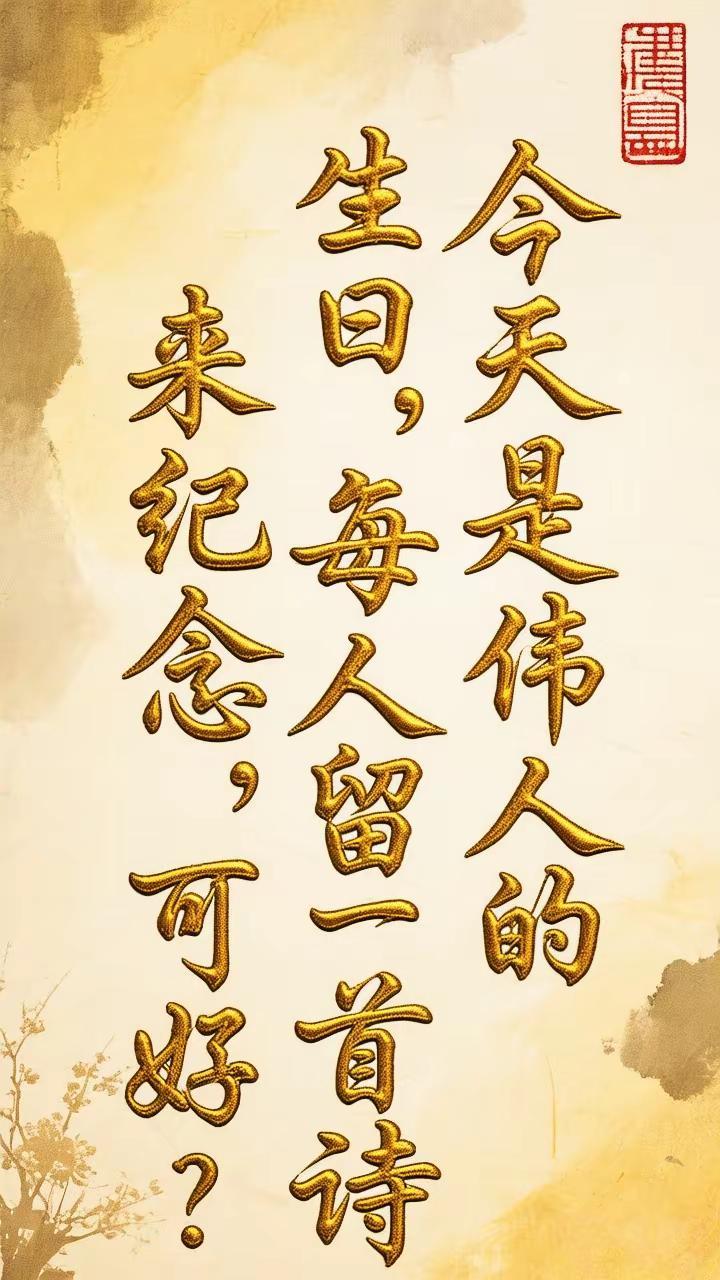 今天是伟人的
生日，每人留一首诗
来纪念，可好？